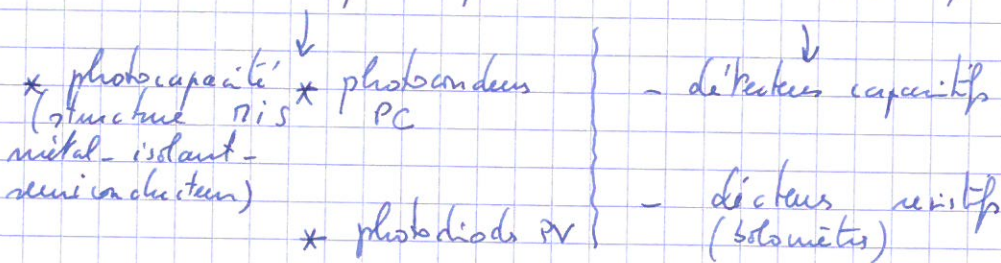 * photocapacité
(structure MIS
métal-isolant-
semiconducteur)
* photoconducteurs
PC
* photodiodes PV
- détecteurs capacitifs
- détecteurs resistifs
(bolomètres)